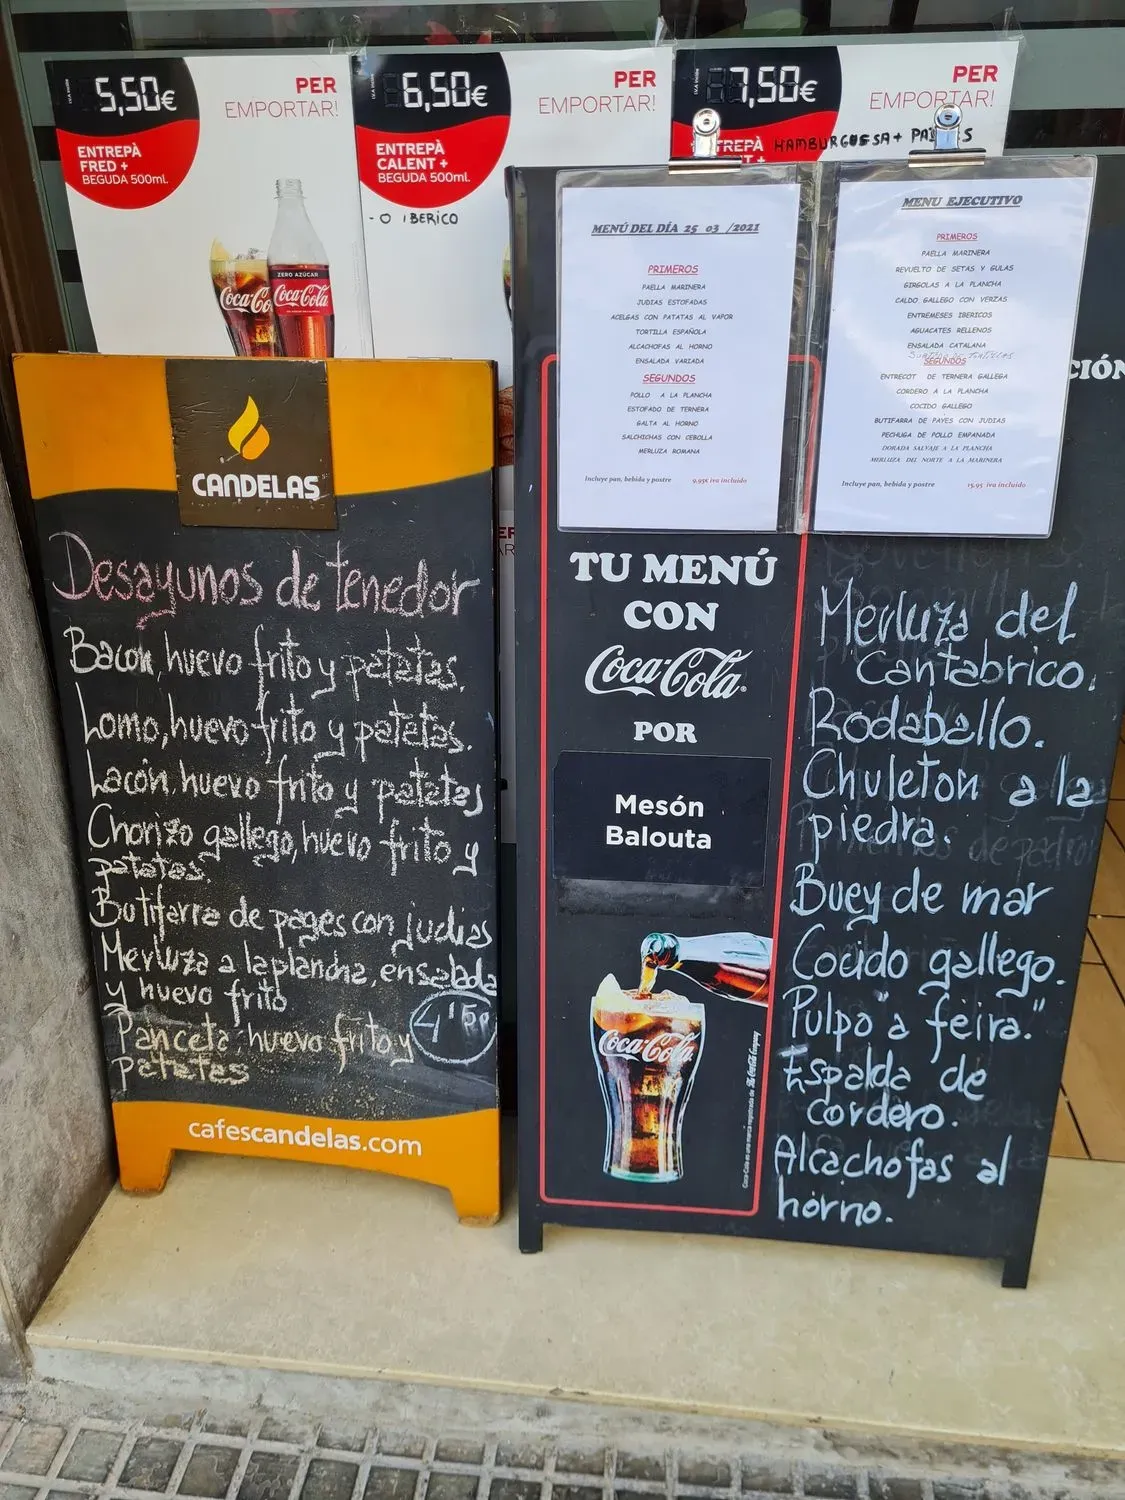 5,50€
PER
EMPORTAR!
ENTREPÀ
FRED +
BEGUDA 500ml.
ZERO AZÚCAR
Coca-Co
Coca-Cola
6,50€
PER
EMPORTAR!
ENTREPÀ
CALENT +
BEGUDA 500ml.
- O IBERICO
7,50€
PER
EMPORTAR!
HAMBURGUESA +
MENÚ DEL DÍA 25 03 /2021
PRIMEROS
PAELLA MARINERA
JUDIAS ESTOFADAS
ACELGAS CON PATATAS AL VAPOR
TORTILLA ESPAÑOLA
ALCACHOFAS AL HORNO
ENSALADA VARIADA
SEGUNDOS
POLLO A LA PLANCHA
ESTOFADO DE TERNERA
GALTA AL HORNO
SALCHICHAS CON CEBOLLA
MERLUZA ROMANA
Incluye pan, bebida y postre 9.95€ iva incluido
MENU EJECUTIVO
PRIMEROS
PAELLA MARINERA
REVUELTO DE SETAS Y GULAS
GIRGOLAS A LA PLANCHA
CALDO GALLEGO CON VERZAS
ENTREMESES IBERICOS
AGUACATES RELLENOS
ENSALADA CATALANA
SEGUNDOS
ENTRECOT DE TERNERA GALLEGA
CORDERO A LA PLANCHA
COCIDO GALLEGO
BUTIFARRA DE PAYES CON JUDIAS
PECHUGA DE POLLO EMPANADA
DORADA SALVAJE A LA PLANCHA
MERLUZA DEL NORTE A LA MARINERA
Incluye pan, bebida y postre 15,95 iva incluido
CIÓN
CANDELAS
Desayunos de tenedor
Bacon, huevo frito y patatas.
Lomo, huevo frito y patatas.
Lacón, huevo frito y patatas
Chorizo gallego, huevo frito y
patatas.
Butifarra de pages con judias
Merluza a la plancha, ensalada
y huevo frito
Panceta, huevo frito y
patatas
4'50
cafescandelas.com
TU MENÚ
CON
Coca-Cola
POR
Mesón
Balouta
Coca-Cola
Coca-Cola es una marca registrada de The Coca-Cola Company
Merluza del
Cantabrico.
Rodaballo.
Chuleton a la
piedra.
Buey de mar
Cocido gallego.
Pulpo "a feira."
Espalda de
cordero.
Alcachofas al
horno.